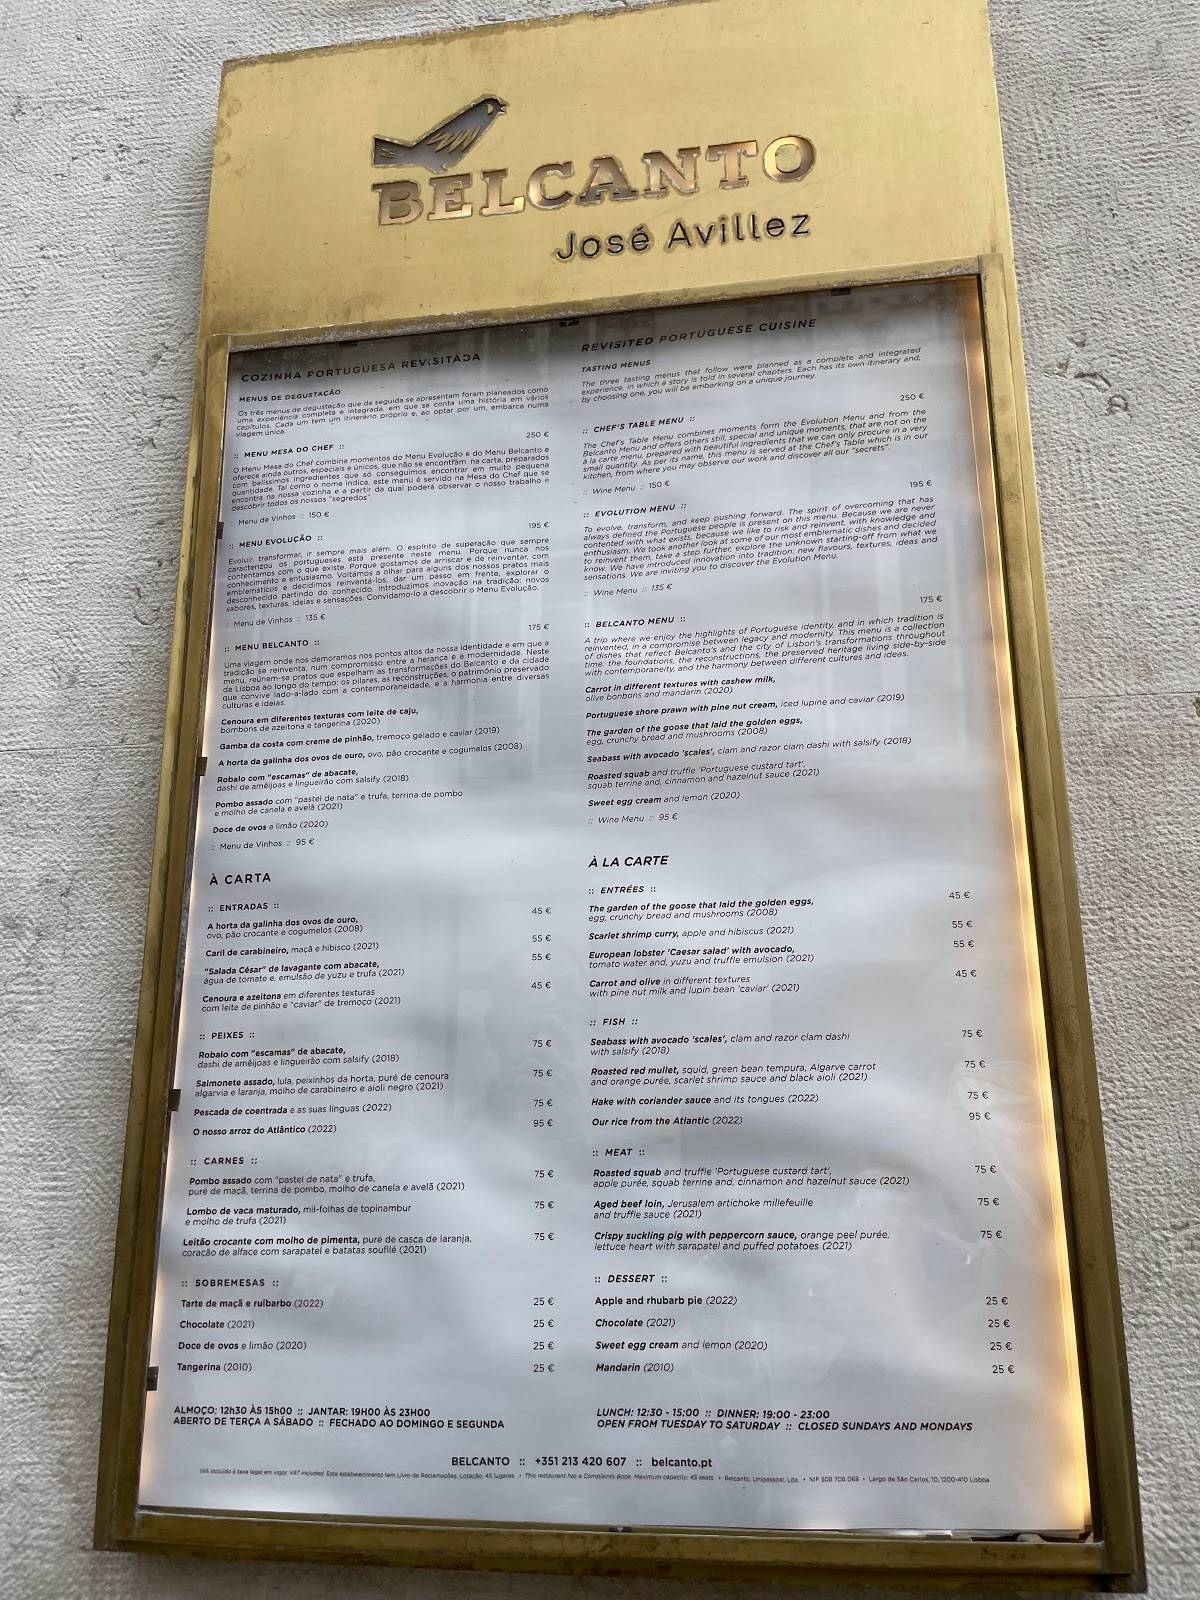 BELCANTO
José Avillez
COZINHA PORTUGUESA REVISITADA
MENUS DE DEGUSTAÇÃO
Os três menus de degustação que de seguida se apresentam foram planeados como
uma experiência completa e integrada, em que se conta uma história em vários
capítulos. Cada um tem um itinerário próprio e, ao optar por um, embarca numa
viagem única.
250 €
:: MENU MESA DO CHEF ::
O Menu Mesa do Chef combina momentos do Menu Evolução e do Menu Belcanto e
oferece ainda outros, especiais e únicos, que não se encontram na carta, preparados
com belíssimos ingredientes que só conseguimos encontrar em muito pequena
quantidade. Tal como o nome indica, este menu é servido na Mesa do Chef que se
encontra na nossa cozinha e a partir da qual poderá observar o nosso trabalho e
descobrir todos os nossos "segredos".
:: Menu de Vinhos :: 150 €
195 €
:: MENU EVOLUÇÃO ::
Evoluir, transformar, ir sempre mais além. O espírito de superação que sempre
caracterizou os portugueses está presente neste menu. Porque nunca nos
contentamos com o que existe. Porque gostamos de arriscar e de reinventar, com
conhecimento e entusiasmo. Voltámos a olhar para alguns dos nossos pratos mais
emblemáticos e decidimos reinventá-los, dar um passo em frente, explorar o
desconhecido partindo do conhecido. Introduzimos inovação na tradição: novos
sabores, texturas, ideias e sensações. Convidamo-lo a descobrir o Menu Evolução.
:: Menu de Vinhos :: 135 €
175 €
:: MENU BELCANTO ::
Uma viagem onde nos demoramos nos pontos altos da nossa identidade e em que a
tradição se reinventa, num compromisso entre a herança e a modernidade. Neste
menu, reúnem-se pratos que espelham as transformações do Belcanto e da cidade
de Lisboa ao longo do tempo: os pilares, as reconstruções, o património preservado
que convive lado-a-lado com a contemporaneidade, e a harmonia entre diversas
culturas e ideias.
Cenoura em diferentes texturas com leite de caju,
bombons de azeitona e tangerina (2020)
Gamba da costa com creme de pinhão, tremoço gelado e caviar (2019)
A horta da galinha dos ovos de ouro, ovo, pão crocante e cogumelos (2008)
Robalo com "escamas" de abacate,
dashi de amêijoas e lingueirão com salsify (2018)
Pombo assado com "pastel de nata" e trufa, terrina de pombo
e molho de canela e avelã (2021)
Doce de ovos e limão (2020)
:: Menu de Vinhos :: 95 €
À CARTA
:: ENTRADAS ::
A horta da galinha dos ovos de ouro, 45 €
ovo, pão crocante e cogumelos (2008)
Caril de carabineiro, maçã e hibisco (2021) 55 €
"Salada César" de lavagante com abacate, 55 €
água de tomate e, emulsão de yuzu e trufa (2021)
Cenoura e azeitona em diferentes texturas 45 €
com leite de pinhão e "caviar" de tremoço (2021)
:: PEIXES ::
Robalo com "escamas" de abacate, 75 €
dashi de amêijoas e lingueirão com salsify (2018)
Salmonete assado, lula, peixinhos da horta, puré de cenoura 75 €
algarvia e laranja, molho de carabineiro e aioli negro (2021)
Pescada de coentrada e as suas línguas (2022) 75 €
O nosso arroz do Atlântico (2022) 95 €
:: CARNES ::
Pombo assado com "pastel de nata" e trufa, 75 €
puré de maçã, terrina de pombo, molho de canela e avelã (2021)
Lombo de vaca maturado, mil-folhas de topinambur 75 €
e molho de trufa (2021)
Leitão crocante com molho de pimenta, puré de casca de laranja, 75 €
coração de alface com sarapatel e batatas souflé (2021)
:: SOBREMESAS ::
Tarte de maçã e ruibarbo (2022) 25 €
Chocolate (2021) 25 €
Doce de ovos e limão (2020) 25 €
Tangerina (2010) 25 €
ALMOÇO: 12h30 ÀS 15h00 :: JANTAR: 19H00 ÀS 23H00
ABERTO DE TERÇA A SÁBADO :: FECHADO AO DOMINGO E SEGUNDA
REVISITED PORTUGUESE CUISINE
TASTING MENUS
The three tasting menus that follow were planned as a complete and integrated
experience, in which a story is told in several chapters. Each has its own itinerary and,
by choosing one, you will be embarking on a unique journey.
250 €
:: CHEF'S TABLE MENU ::
The Chef's Table Menu combines moments form the Evolution Menu and from the
Belcanto Menu and offers others still, special and unique moments, that are not on the
à la carte menu, prepared with beautiful ingredients that we can only procure in a very
small quantity. As per its name, this menu is served at the Chef's Table which is in our
kitchen, from where you may observe our work and discover all our "secrets".
:: Wine Menu :: 150 €
195 €
:: EVOLUTION MENU ::
To evolve, transform, and keep pushing forward. The spirit of overcoming that has
always defined the Portuguese people is present on this menu. Because we are never
contented with what exists, because we like to risk and reinvent, with knowledge and
enthusiasm. We took another look at some of our most emblematic dishes and decided
to reinvent them, take a step further, explore the unknown starting-off from what we
know. We have introduced innovation into tradition: new flavours, textures, ideas and
sensations. We are inviting you to discover the Evolution Menu.
:: Wine Menu :: 135 €
175 €
:: BELCANTO MENU ::
A trip where we enjoy the highlights of Portuguese identity, and in which tradition is
reinvented, in a compromise between legacy and modernity. This menu is a collection
of dishes that reflect Belcanto's and the city of Lisbon's transformations throughout
time: the foundations, the reconstructions, the preserved heritage living side-by-side
with contemporaneity, and the harmony between different cultures and ideas.
Carrot in different textures with cashew milk,
olive bonbons and mandarin (2020)
Portuguese shore prawn with pine nut cream, iced lupine and caviar (2019)
The garden of the goose that laid the golden eggs,
egg, crunchy bread and mushrooms (2008)
Seabass with avocado 'scales', clam and razor clam dashi with salsify (2018)
Roasted squab and truffle 'Portuguese custard tart',
squab terrine and, cinnamon and hazelnut sauce (2021)
Sweet egg cream and lemon (2020)
:: Wine Menu :: 95 €
À LA CARTE
:: ENTRÉES ::
The garden of the goose that laid the golden eggs, 45 €
egg, crunchy bread and mushrooms (2008)
Scarlet shrimp curry, apple and hibiscus (2021) 55 €
European lobster 'Caesar salad' with avocado, 55 €
tomato water and, yuzu and truffle emulsion (2021)
Carrot and olive in different textures 45 €
with pine nut milk and lupin bean 'caviar' (2021)
:: FISH ::
Seabass with avocado 'scales', clam and razor clam dashi 75 €
with salsify (2018)
Roasted red mullet, squid, green bean tempura, Algarve carrot 75 €
and orange purée, scarlet shrimp sauce and black aioli (2021)
Hake with coriander sauce and its tongues (2022) 75 €
Our rice from the Atlantic (2022) 95 €
:: MEAT ::
Roasted squab and truffle 'Portuguese custard tart', 75 €
apple purée, squab terrine and, cinnamon and hazelnut sauce (2021)
Aged beef loin, Jerusalem artichoke millefeuille 75 €
and truffle sauce (2021)
Crispy suckling pig with peppercorn sauce, orange peel purée, 75 €
lettuce heart with sarapatel and puffed potatoes (2021)
:: DESSERT ::
Apple and rhubarb pie (2022) 25 €
Chocolate (2021) 25 €
Sweet egg cream and lemon (2020) 25 €
Mandarin (2010) 25 €
LUNCH: 12:30 - 15:00 :: DINNER: 19:00 - 23:00
OPEN FROM TUESDAY TO SATURDAY :: CLOSED SUNDAYS AND MONDAYS
BELCANTO :: +351 213 420 607 :: belcanto.pt
IVA incluído à taxa legal em vigor. VAT included. Este estabelecimento tem Livro de Reclamações. Lotação: 45 lugares. • This restaurant has a Complaints Book. Maximum capacity: 45 seats. • Belcanto, Unipessoal, Lda. • NIF 508 706 068 • Largo de São Carlos, 10, 1200-410 Lisboa